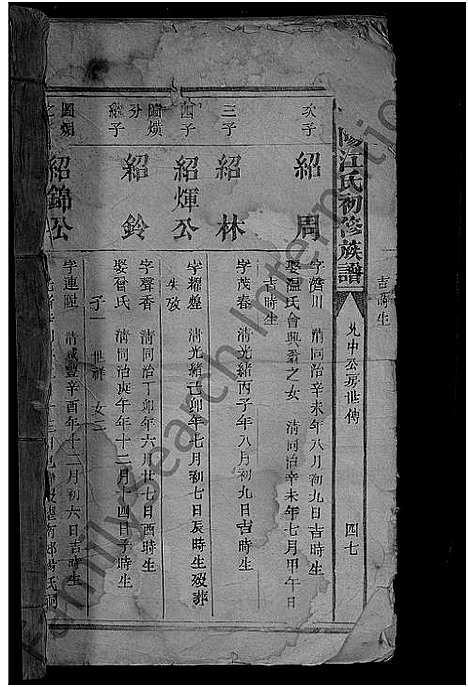 陽江氏初修族譜
允中公房世傳
四七
吉時生
次子
紹周
字 川 清同治辛未年八月初九日吉時生
娶温氏會興 之女 清同治辛未年七月甲午日
吉時生
三子
紹林
字茂春 清光緒丙子年八月初九日吉時生
四子
紹煇公
字耀煌 清光緒己卯年七月初七日辰時生歿葬
失攷
國熿
分
繼子
紹鈴
字聲香 清同治丁卯年六月廿七日酉時生
娶曾氏 清同治庚午年十二月十四日子時生
子一 世祥 女二
國烟
之
紹錦公
字連陞 清咸豐辛酉年十二月初六日吉時生
FamilySearch International